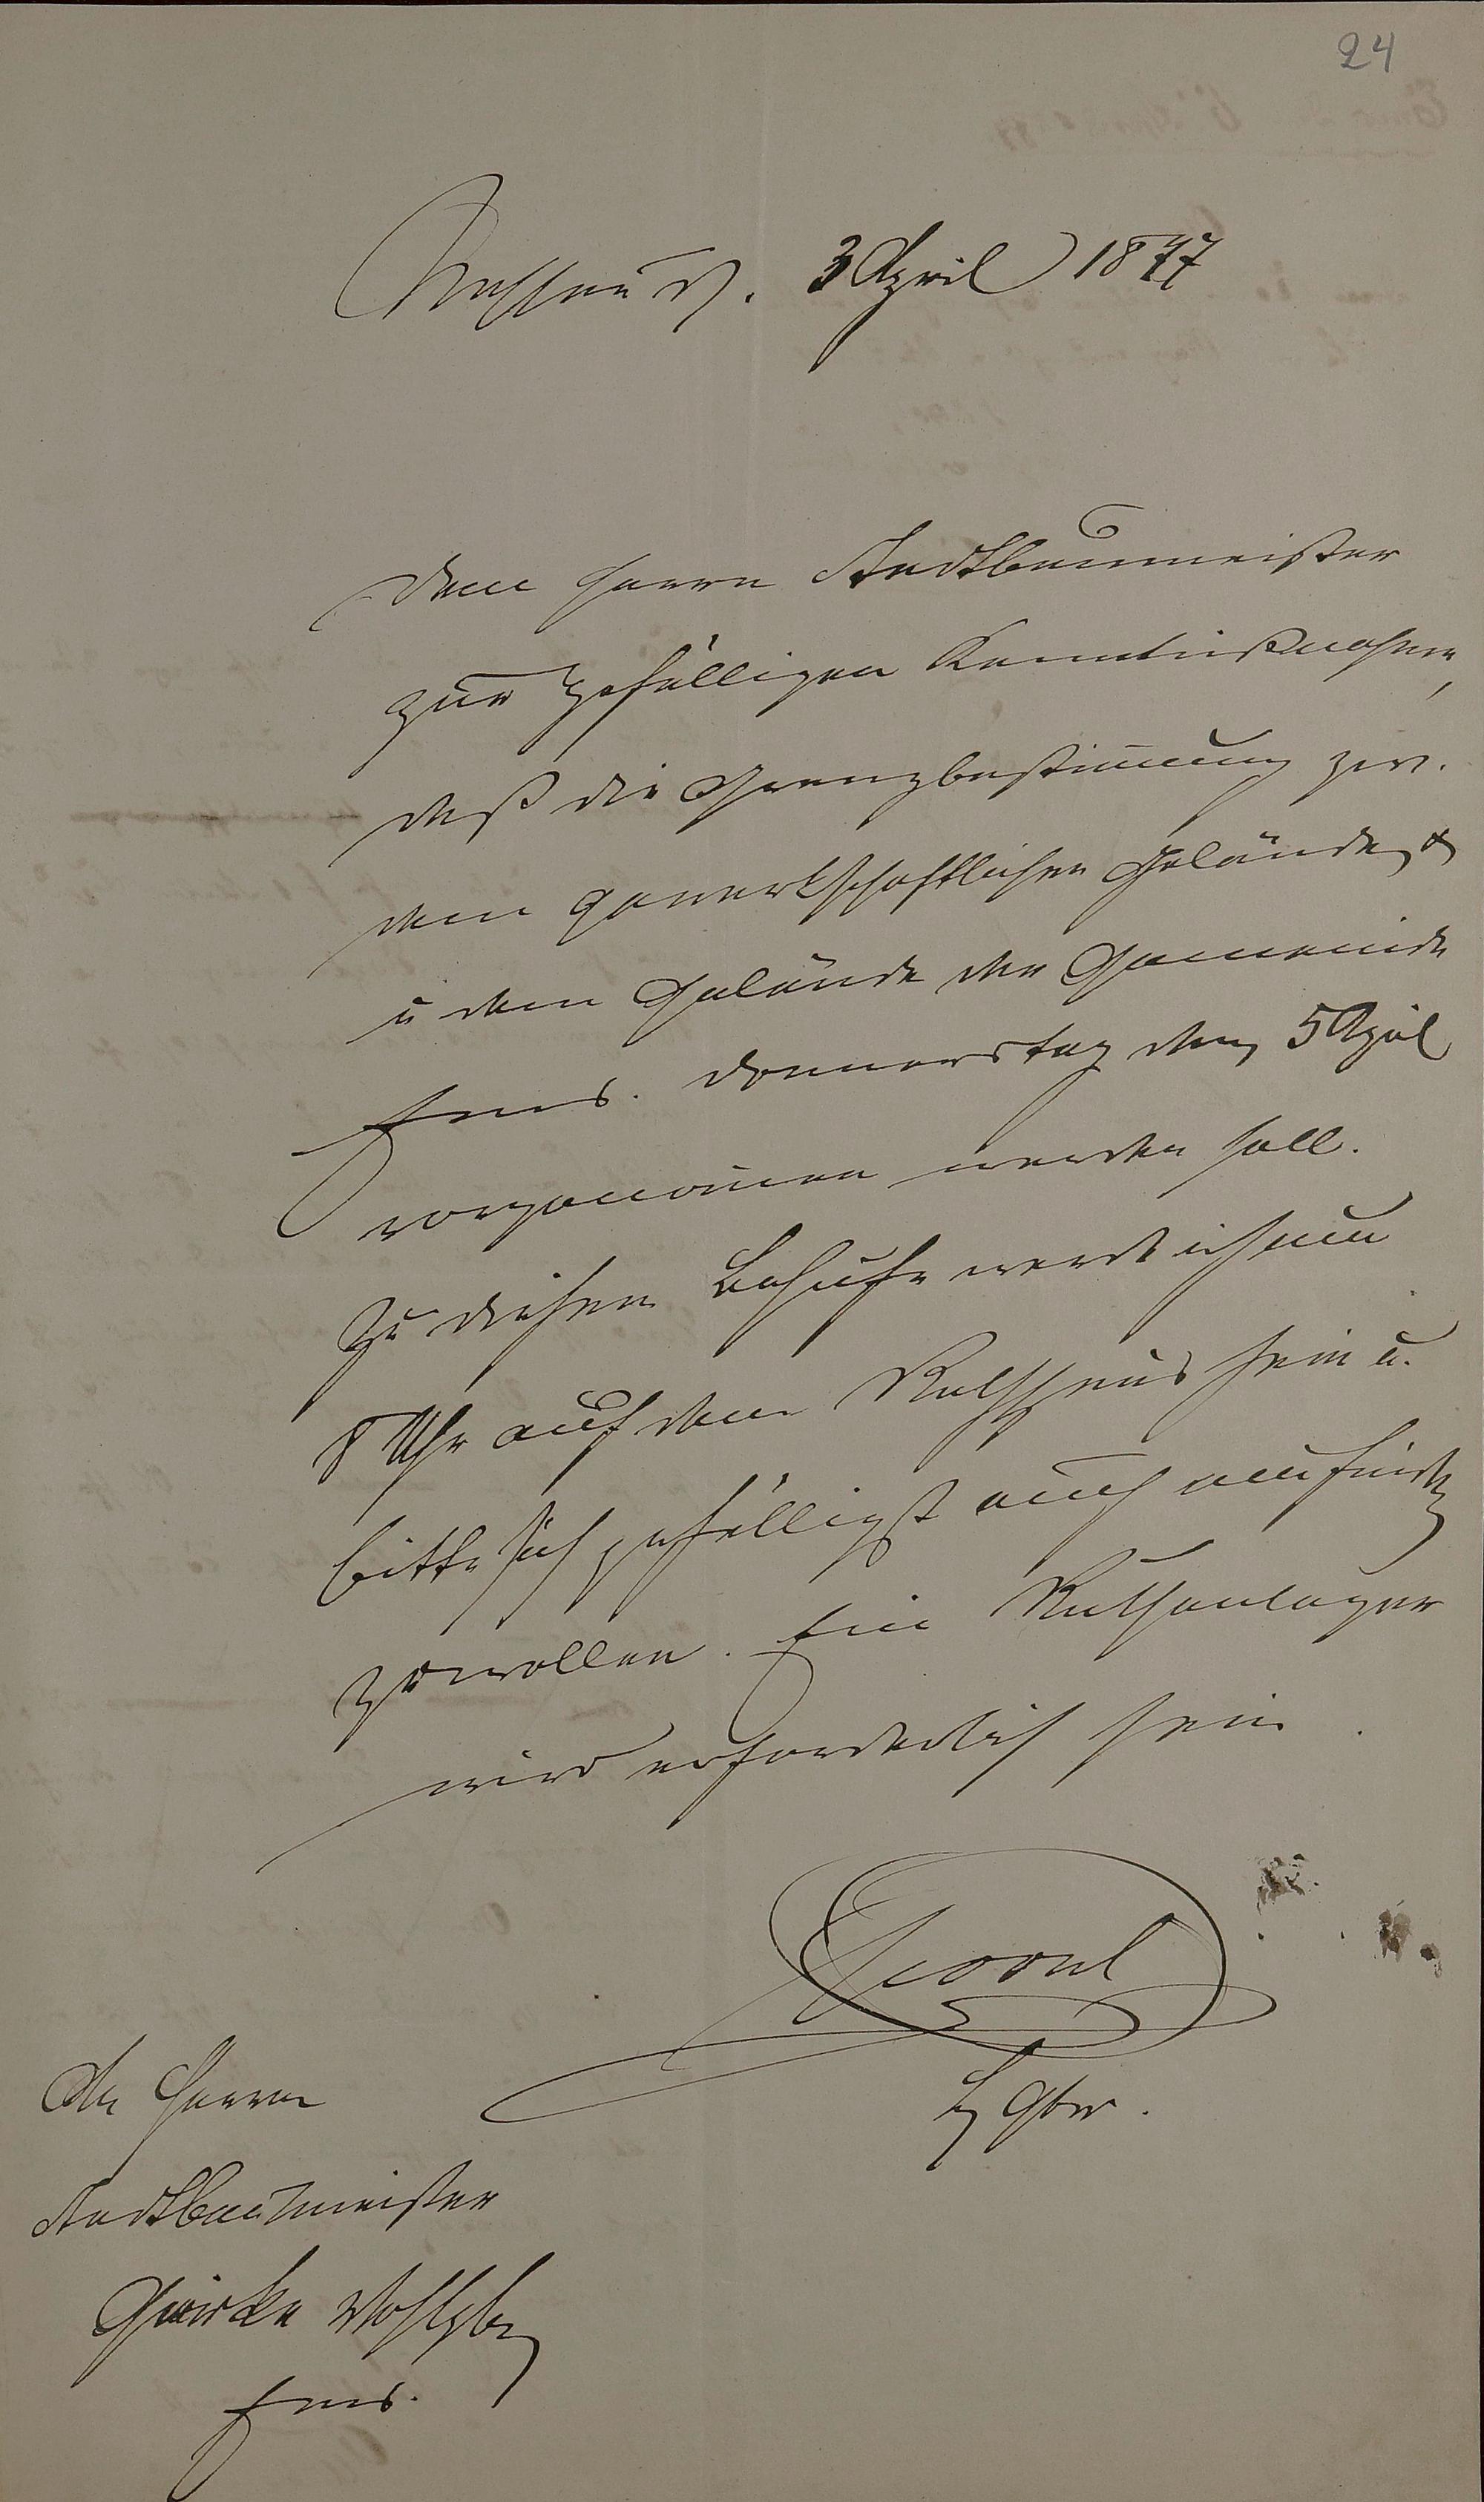 24
Nassau d. 3 April 1877
Dem Herrn Stadtbaumeister
zur gefälligen Kenntnißnahme,
daß die Grenzbestimmung zw.
dem gewerkschaftlichen Gelände
u dem Gelände der Gemeinde
Ems. Donnerstag den 5 April
vorgenommen werden soll.
Zu diesem Behufe werde ich um
8 Uhr auf dem Rathhaus sein u.
bitte sich gefälligst auch einfinden
zu wollen. Ein Ruthenleger
wird erforderlich sein.
An Herrn
Stadtbaumeister
Wohlgb
Ems.